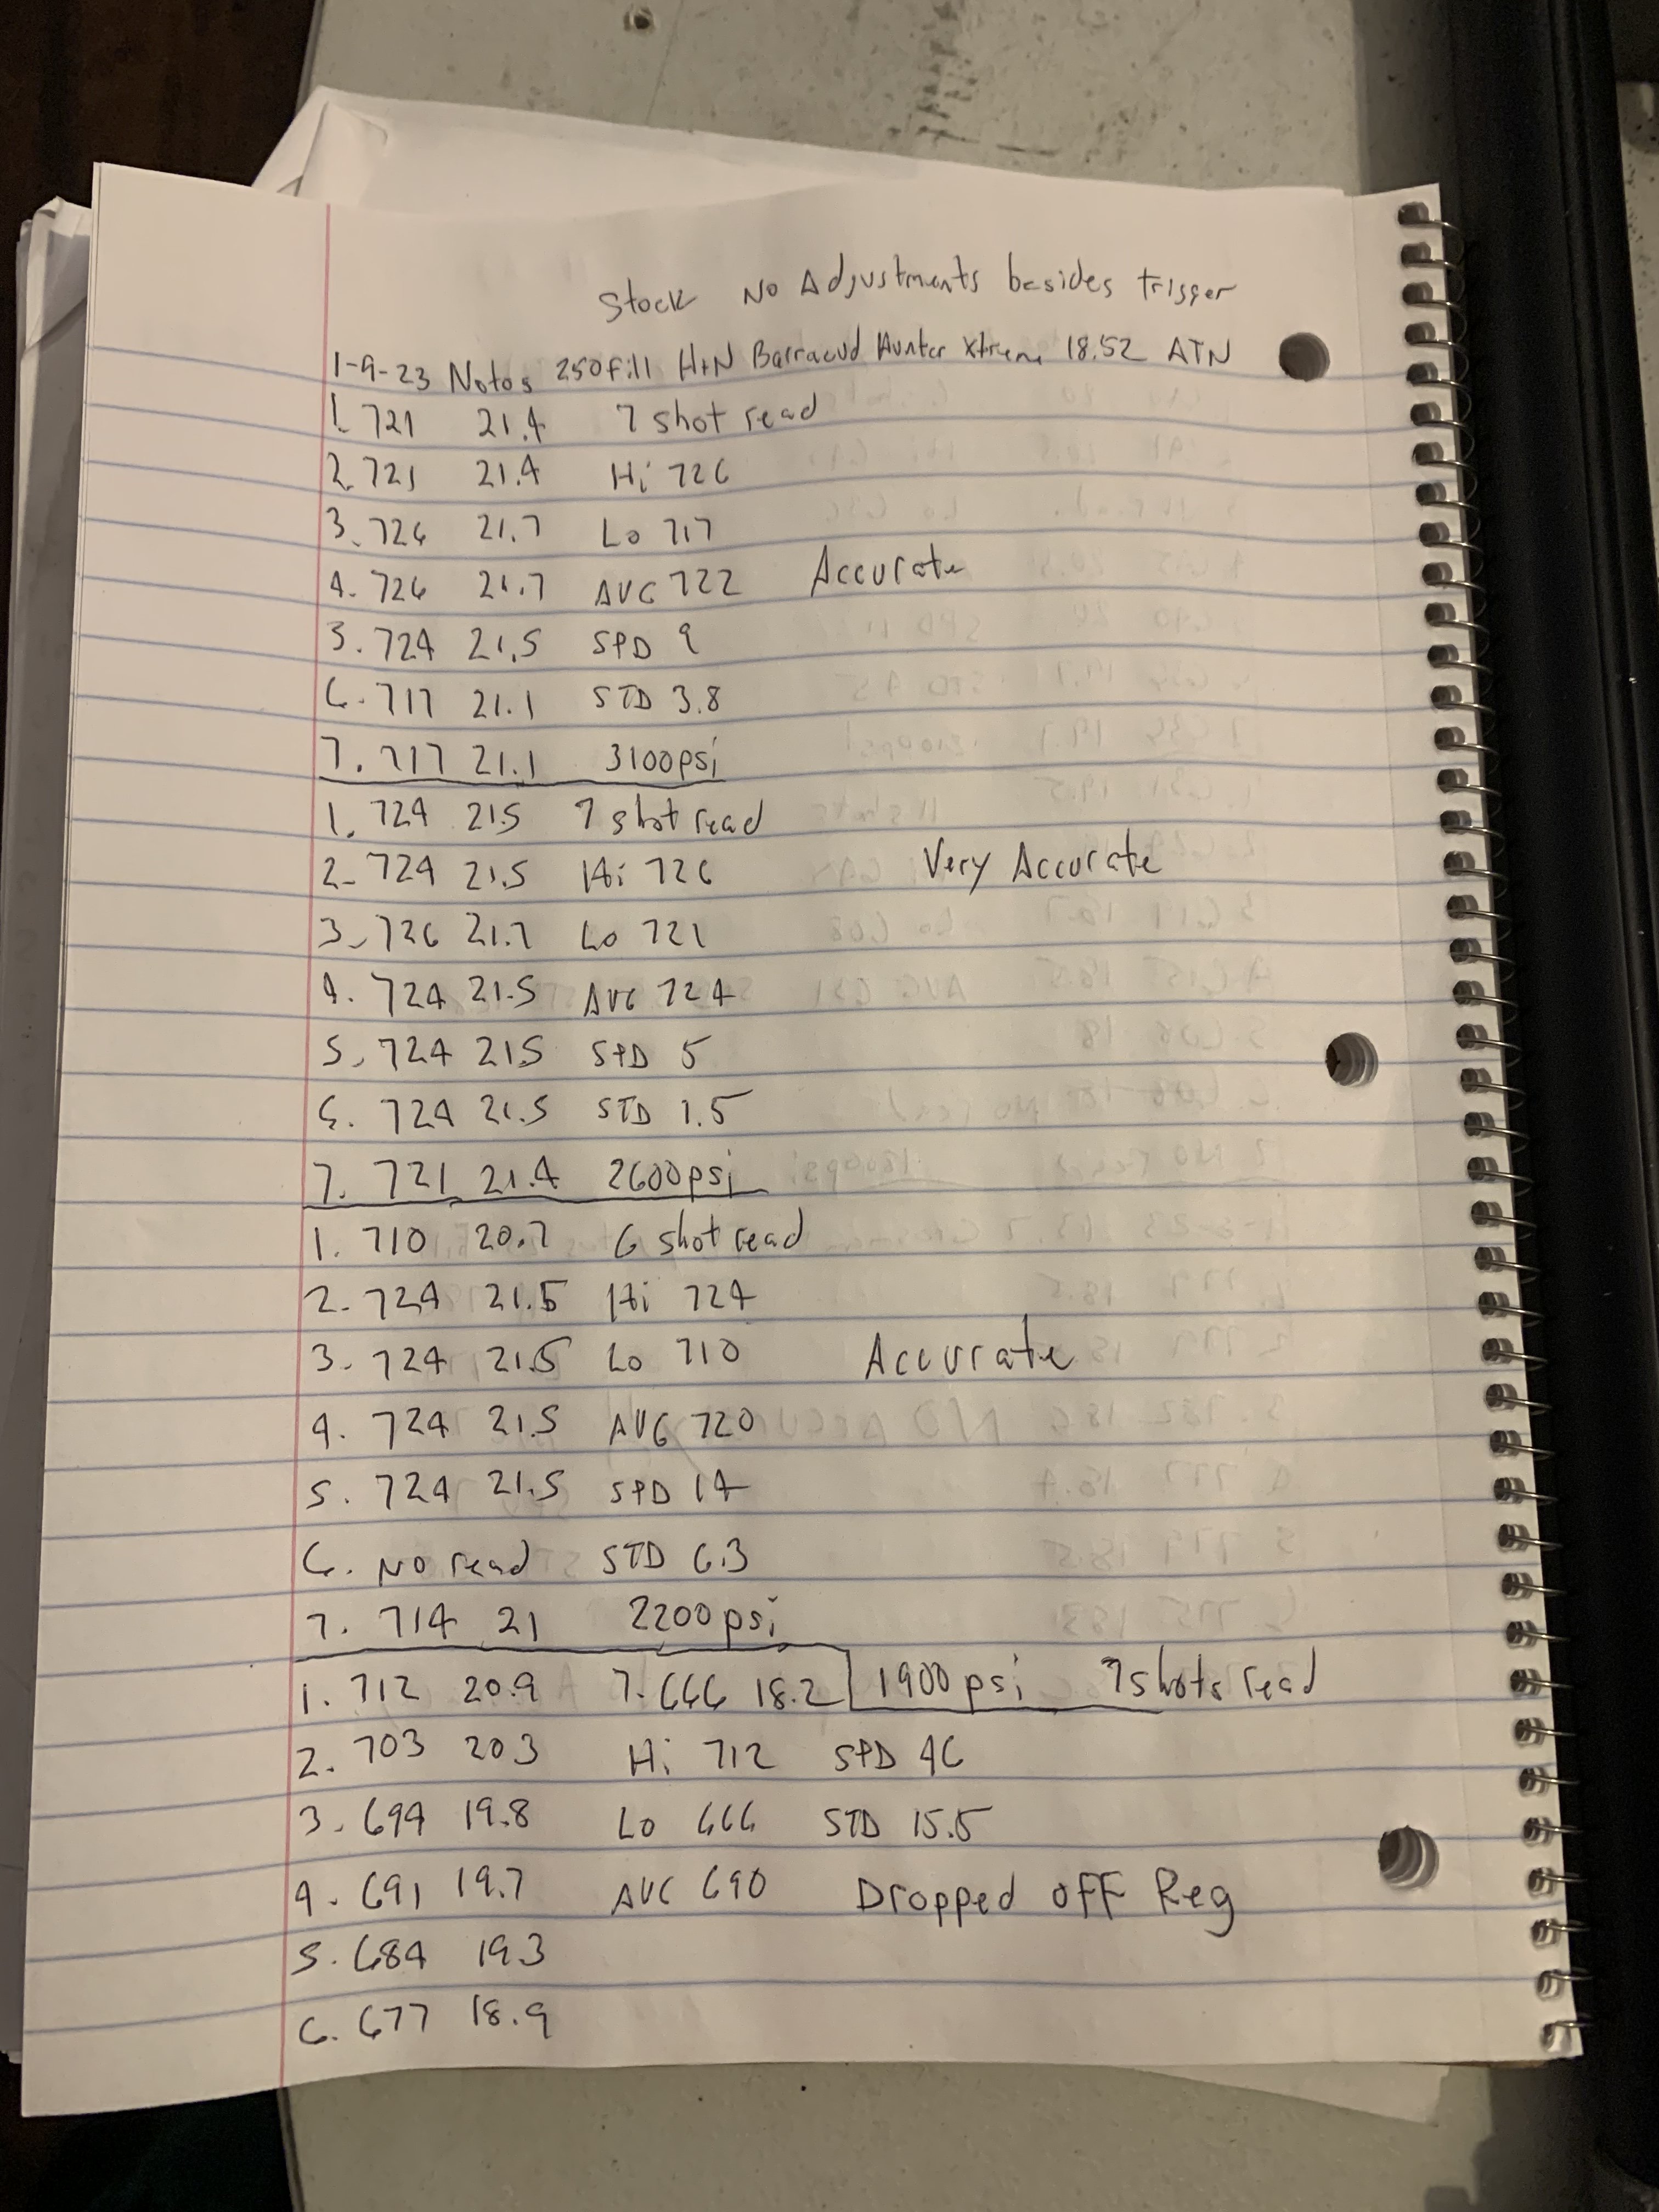 Stock No Adjustments besides trigger
1-9-23 Notes 250fill H+N Barracud Hunter Xtreme 18.52 ATN
1. 721 21.4 7 shot read
2. 721 21.4 Hi 726
3. 726 21.7 Lo 717
4. 726 21.7 AVG 722 Accurate
3. 724 21.5 SPD 9
6. 717 21.1 STD 3.8
7. 717 21.1 3100psi
1. 724 21.5 7 shot read
2. 724 21.5 Hi 726 Very Accurate
3. 726 21.7 Lo 721
4. 724 21.5 AVG 724
5. 724 21.5 SPD 5
6. 724 21.5 STD 1.5
7. 721 21.4 2600psi
1. 710 20.7 6 shot read
2. 724 21.5 Hi 724
3. 724 21.5 Lo 710 Accurate
4. 724 21.5 AVG 720
5. 724 21.5 SPD 14
6. No read STD 6.3
7. 714 21 2200psi
1. 712 20.9 7. 666 18.2 1900psi 7shots read
2. 703 203 Hi 712 SPD 46
3. 694 19.8 Lo 666 STD 15.5
4. 691 19.7 AVG 690 Dropped off Reg
5. 684 19.3
6. 677 18.9